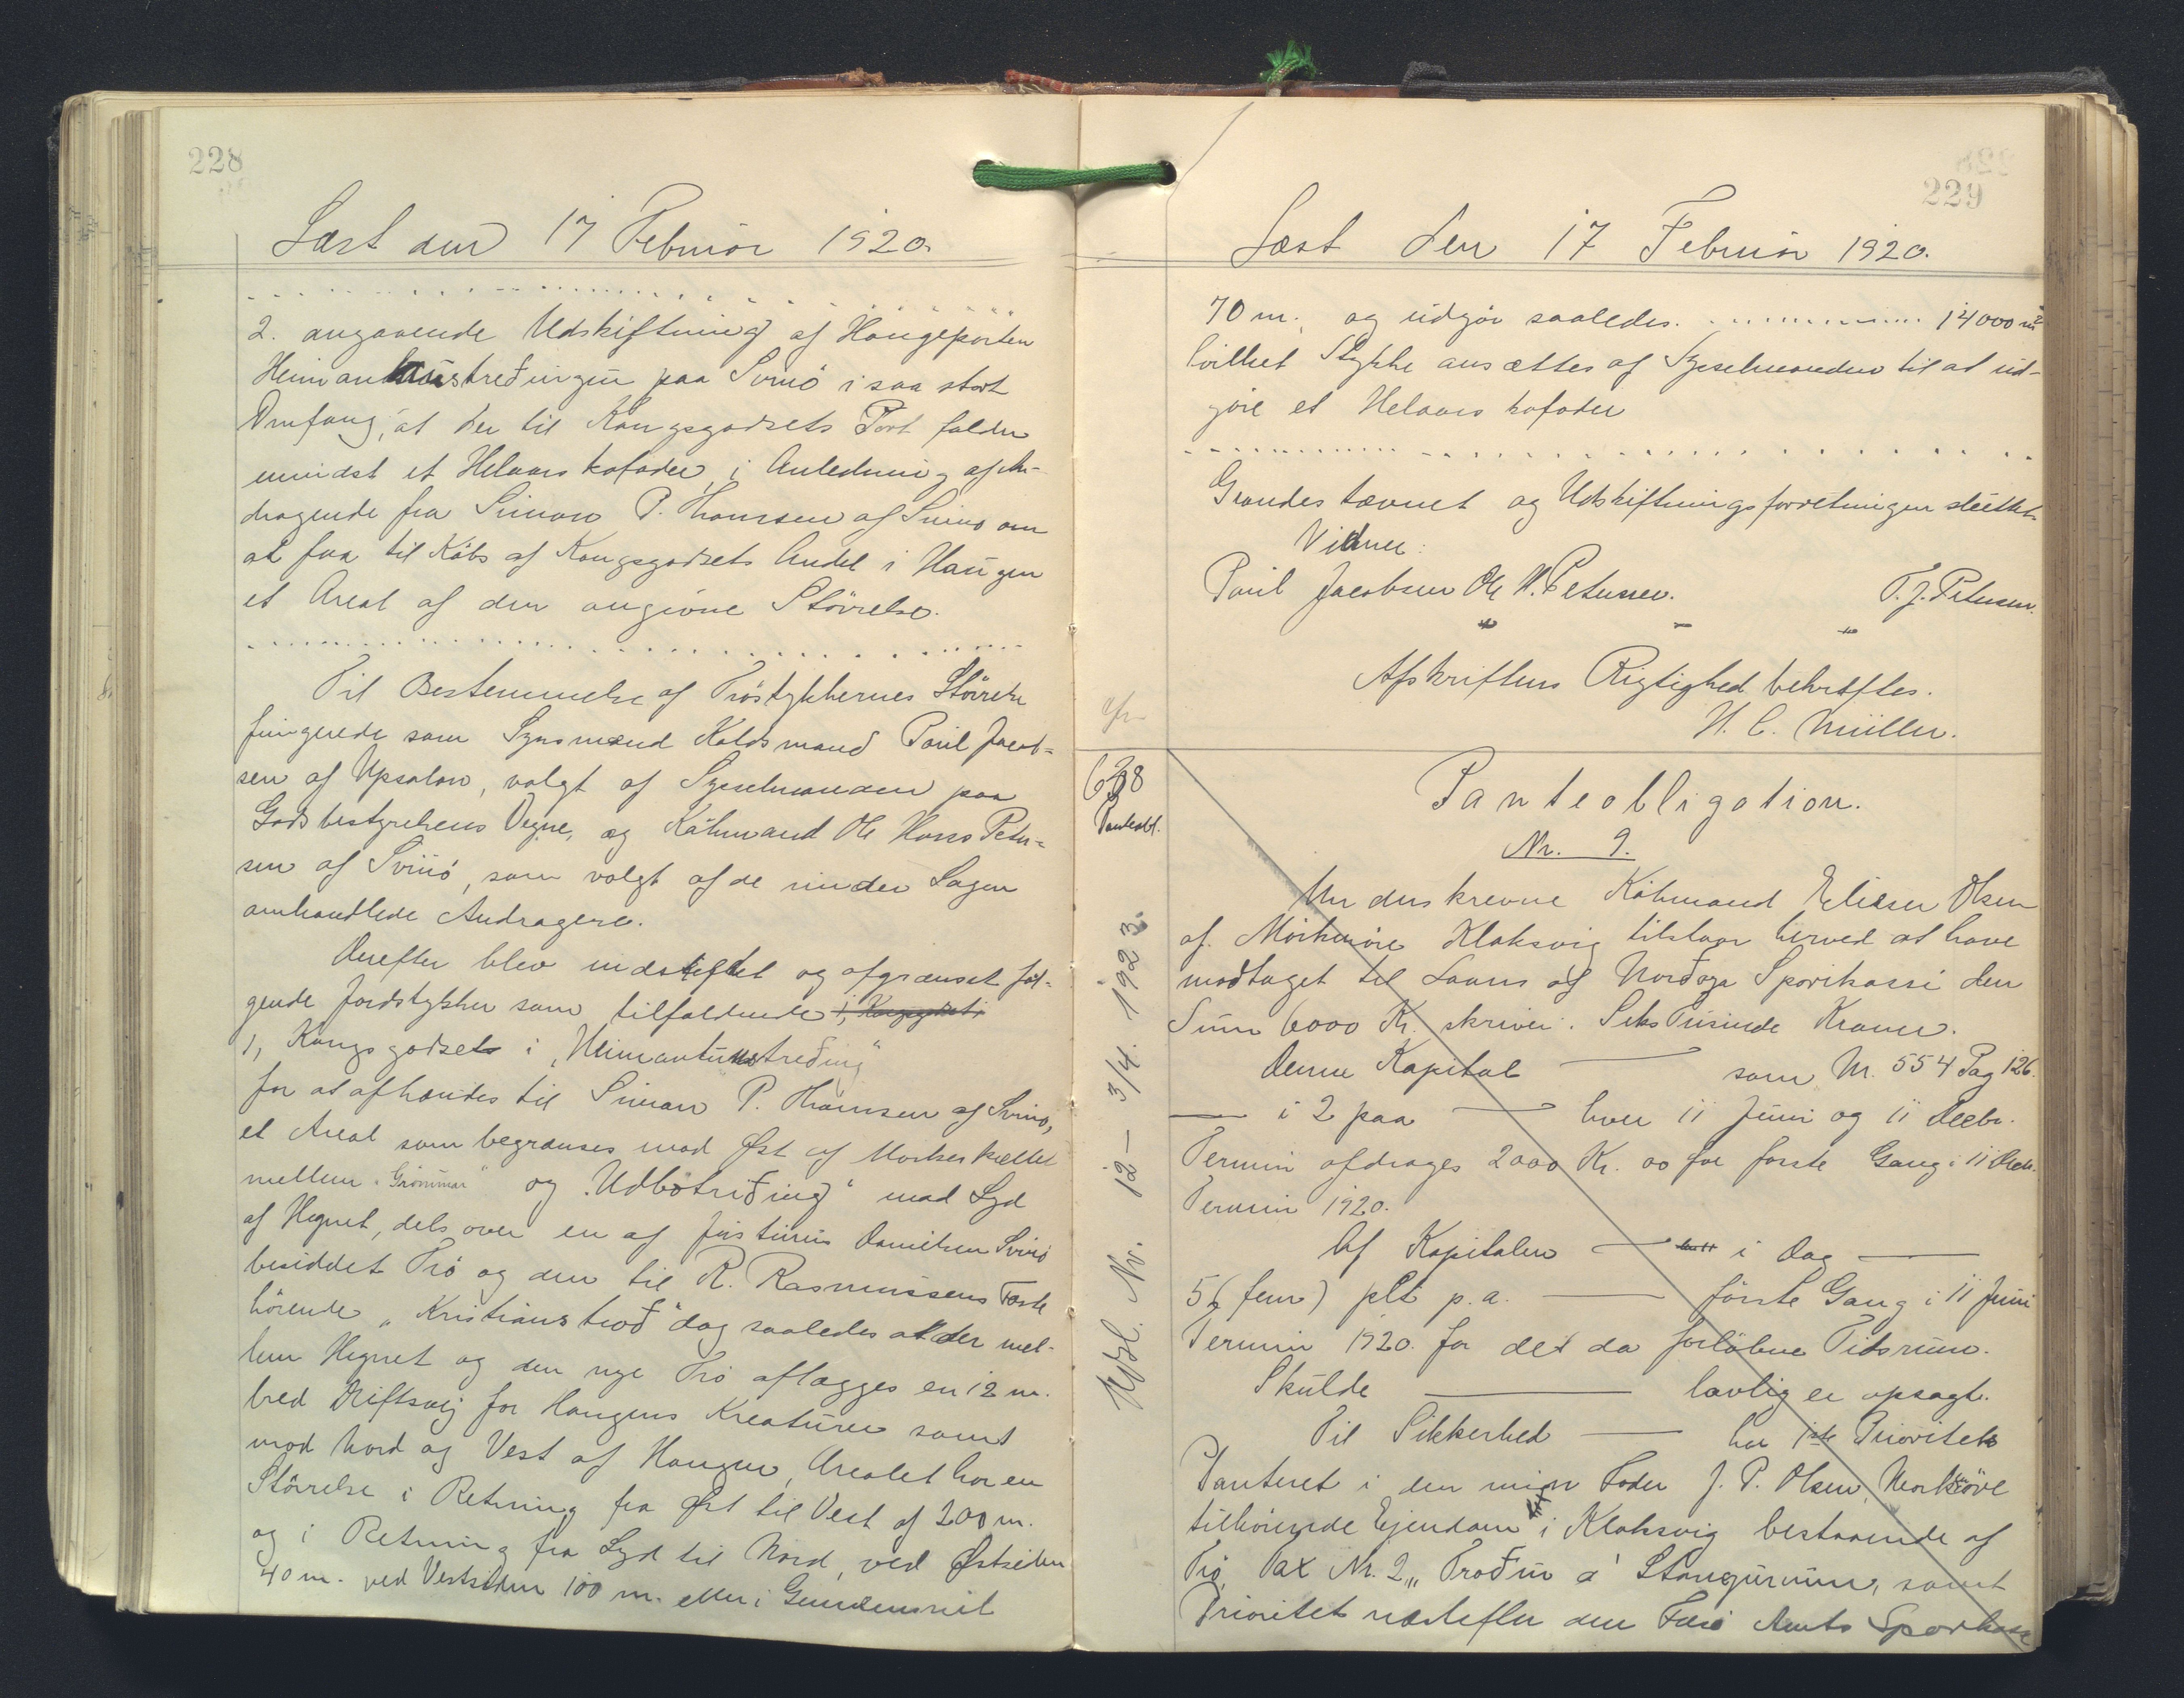 228
Læst den 17 Februar 1920.
2. angaaende Udskiftning af Haugeparten
Heimantúnstreðingin paa Svinö i saa stort
Omfang, at der til Kongsgodsets Part falder
mindst et Helaars kofoder, i Anledning af An-
dragende fra Simon P. Thomsen af Svinö om
at faa til Köbs af Kongsgodsets Andel i Haugen
et Areal af den angivne Störrelse.
Til Bestemmelse af Tröstykkernes Störrelse
fungerede som Synsmænd Kaldsmand Poul Jacob-
sen af Upsalon, valgt af Sysselmanden paa
Godsbestyrelsens Vegne, og Köbmand Ole Hans Peter-
sen af Svinö, som valgt af de under Sagen
omhandlede Andragere.
Derefter blev udskiftet og afgrænset föl-
gende Jordstykker som tilfaldende 1, Kongsgodset i
1, Kongsgodsets i "Heimantúnstreðing"
for at afhændes til Simon P. Thomsen af Svinö,
et Areal som begrænses mod Øst af Markeskellet
mellem "Grömmar" og "Udbötriðing" mod Syd
af Hegnet, dels over en af Justinus Danielsen Svinö
besiddet Trö og den til R. Rasmussens Fæste
hörende "Kristians troð" dog saaledes at der mel-
lem Hegnet og den nye Trö aflægges en 12 m.
bred Driftsvej for Haugens Kreaturer samt
mod Nord og Vest af Haugen, Arealet har en
Störrelse i Retning fra Øst til Vest af 200 m.
og i Retning fra Syd til Nord, ved Østsiden
40 m. ved Vestsiden 100 m. eller i Gennemsnit
229
Læst den 17 Februar 1920.
70 m., og udgör saaledes. 14000 m²
hvilket Stykke ansættes af Sysselmanden til at ud-
göre et Helaars kofoder
Grandestævnet og Udskiftningsforretningen sluttet.
Vidner:
Poul Jacobsen Ole H. Petersen. T. J. Petersen.
Afskriftens Rigtighed bekræftes.
H. C. Müller.
Panteobl.
Panteobligation.
Nr. 9.
Underskrevne Köbmand Elieser Olsen
af Mörkeröre Klaksvig tilstaar herved at have
modtaget til Laans af Norðoya Sparikassi den
Sum 6000 Kr. skriver: Seks Tusinde Kroner.
Denne Kapital som Nr. 554 Pag 126.
i 2 paa hver 11 Juni og 11 Decbr.
Termin afdrages 2000 Kr. 00 for förste Gang i 11 Decbr.
Termin 1920.
Af Kapitalen i Dag
5 (fem) pCt p. a. förste Gang i 11 Juni
Termin 1920. for det da forlöbne Tidsrum.
Skulde lovlig er opsagt.
Til Sikkerhed her 1ste Prioritets
Panteret i den min Fader J. P. Olsen, Mörkeröre
tilhörende Ejendom i Klaksvig bestaaende af
Trö, Tax Nr. 2, "Troðin á Stangurunn, samt
Prioritet næstefter den Færö Amts Sparkasse
Udsl. Nr. 12 - 3/4. 1923.